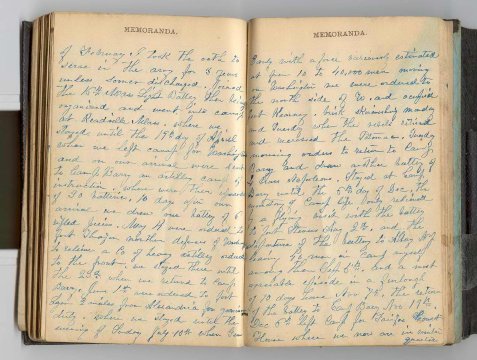 MEMORANDA.
of February I took the oath to
serve in the army for 3 years
unless sooner discharged. Joined
the 16th Mass Light Battery then being
organized and went into camp
at Readville Mass. where we
stayed until the 19th day of April
when we left camp for Washington
and on our arrival were sent
to Camp Barry an artillery camp of
instruction, where were then
of 30 batteries, 10 days after our
arrival we drew our battery of 6
rifled pieces. May 14 were ordered to
Fort northern defences of
to relieve a Co of heavy artillery ordered
to the front. we stayed there until
the 28th when we returned to Camp
Barry. June 1st were ordered to Fort
in Alexandria for
duty. where we stayed until the
evening of Sunday July 10th when
MEMORANDA.
Early with a force variously estimated
at from 10 to 40,000 men moving
on Washington we were ordered to
the north side of W. and occupied
Fort Kearney. Brisk skirmishing monday
and Tuesday when the rebels retired
and recrossed the Potomac. Tuesday
morning order to return to Camp
Barry and draw another battery of
Stayed at Camp
Barry until the 5th day of Dec, the
monotony of Camp life only relieved
by a flying with the battery
to Fort Stevens Aug 2d, and the
departure of the battery to
leaving 40 men in Camp myself
among them Sept 5th, and a most
agreeable episode in a furlough
of 10 days Nov 7th, the return
of the battery to Camp Barry Nov 19th,
Dec 5th left Camp for Fairfax Court
House where we now are in winter
quarters